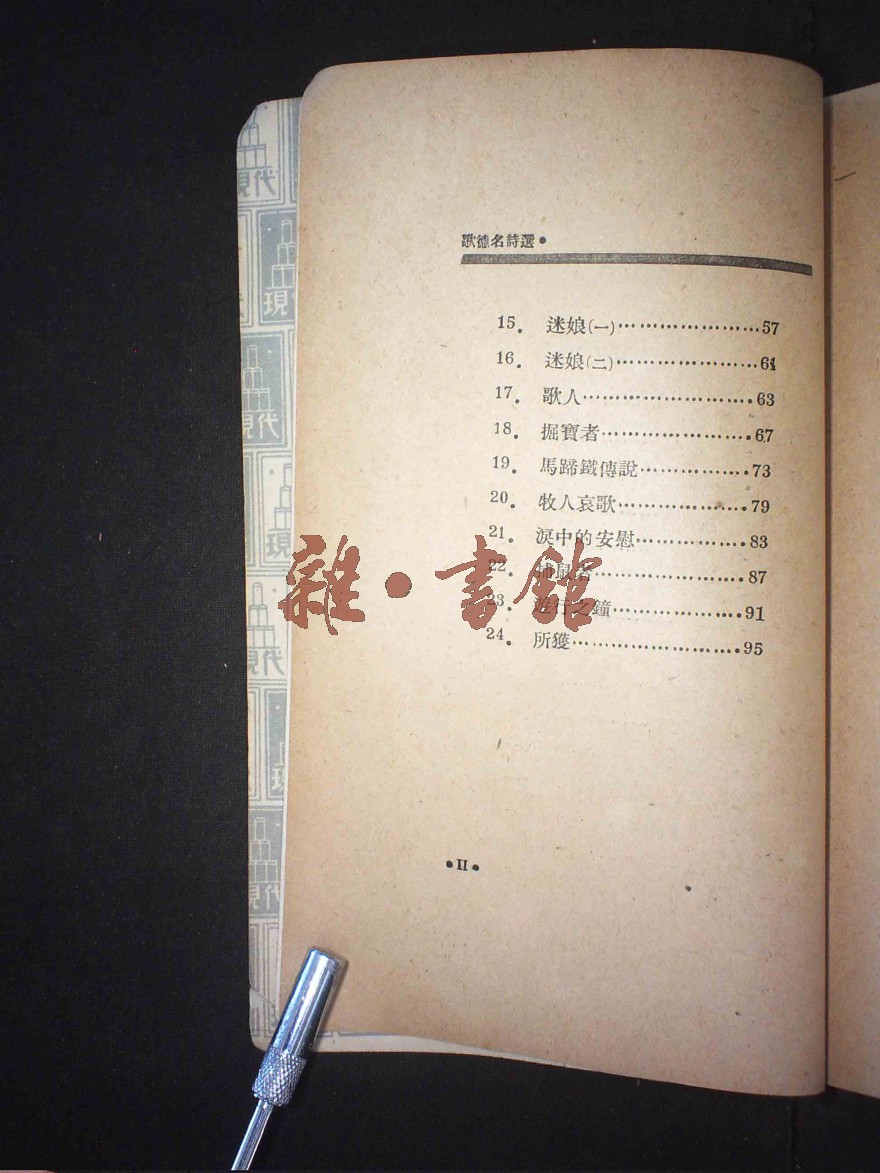 歌德名詩選•
15. 迷娘(一)…………………57
16. 迷娘(二)…………………61
17. 歌人………………………63
18. 掘寶者……………………67
19. 馬蹄鐵傳說………………73
20. 牧人哀歌…………………79
21. 淚中的安慰………………83
22. 捕鼠者……………………87
23. 遊行之鐘…………………91
24. 所獲………………………95
•II•
雜•書館
現代
現
現代
現
現代
現
現代